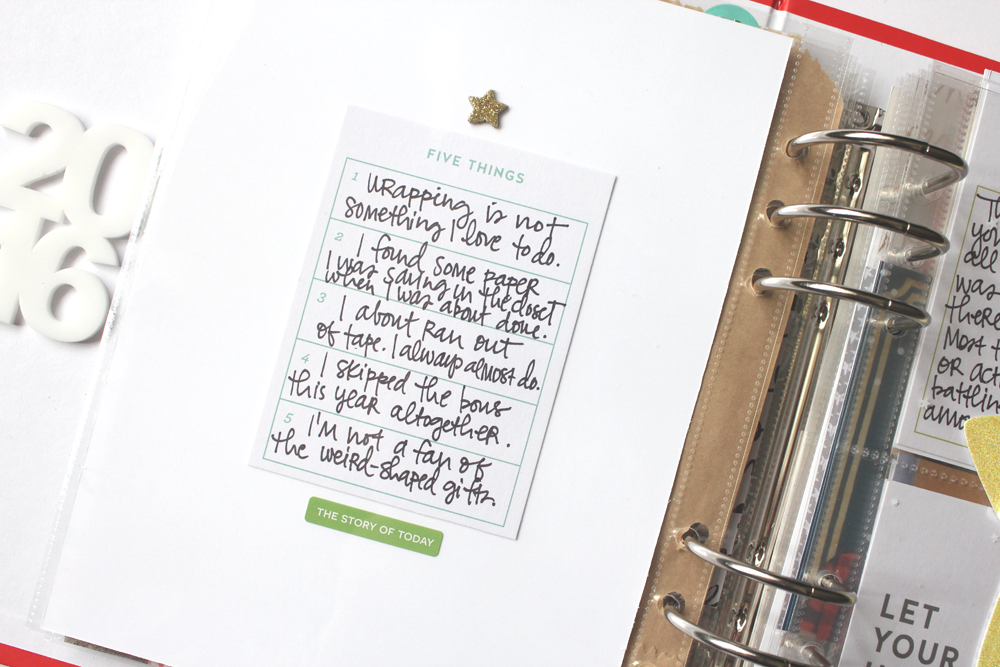 20
16
FIVE THINGS
1 Wrapping is not
something I love to do.
2 I found some paper
I was saving in the closet
when I was about done.
3 I about ran out
of tape. I always almost do.
4 I skipped the bows
this year altogether.
5 I'm not a fan of
the weird-shaped gifts.
THE STORY OF TODAY
all
was
there
Most
or
battling
LET
YOUR